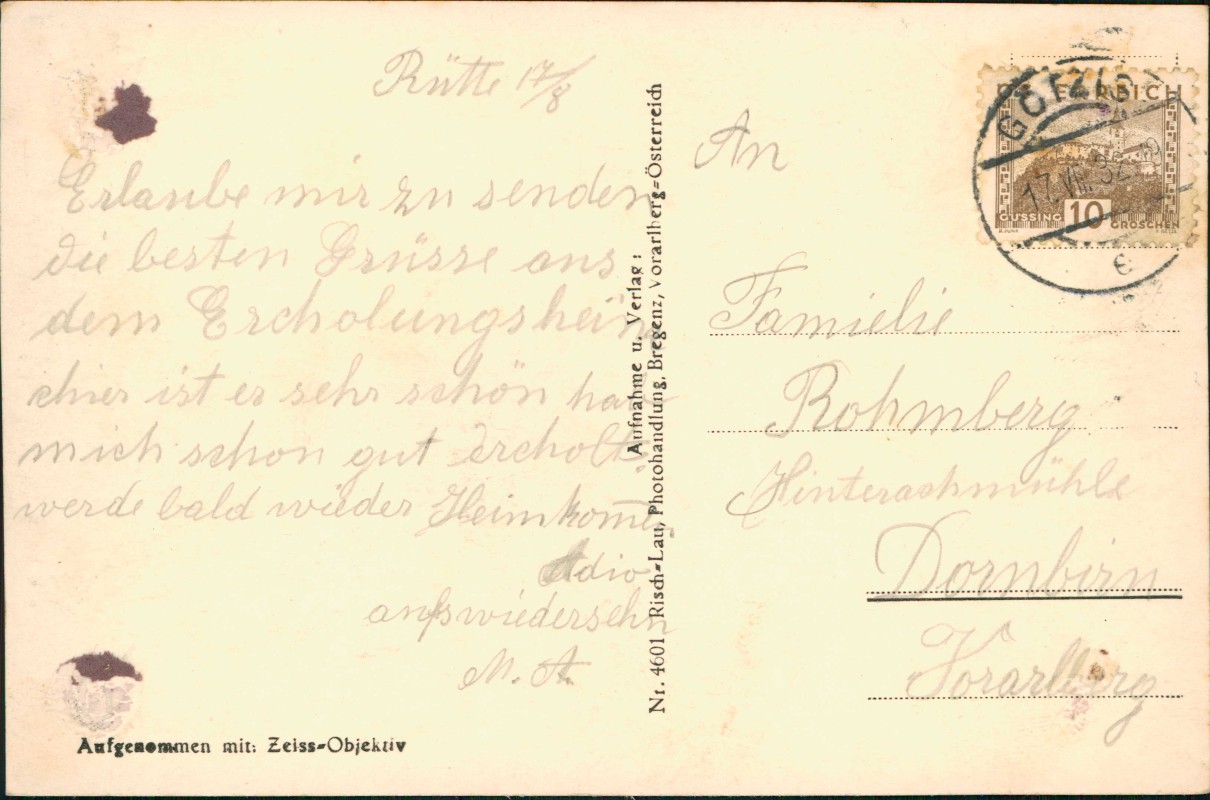 Rütte 17/8
Erlaube mir zu senden
die besten Grüsse aus
dem Ercholungsheim
chier ist es sehr schön hab
mich schon gut ercholt
werde bald wieder Heimkomen
Adio
aufswiedersehn
M. A.
Aufgenommen mit: Zeiss-Objektiv
Aufnahme u. Verlag:
Nr. 4601 Risch-Lau, Photohandlung, Bregenz, Vorarlberg-Österreich
ÖSTERREICH
GÜSSING 10 GROSCHEN
GÖTZIS
17.VIII.32
e
An
Familie
Rohmberg
Hinterachmühle
Dornbirn
Vorarlberg